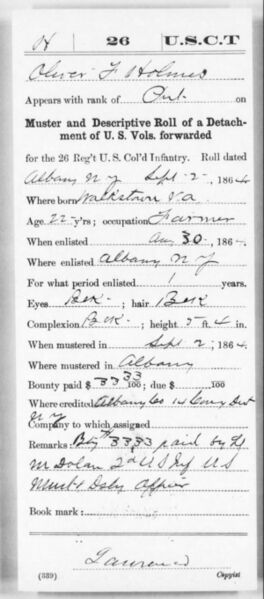 H | 26 | U.S.C.T
Oliver F Holmes
Appears with rank of Pvt. on
Muster and Descriptive Roll of a Detach-
ment of U. S. Vols. forwarded
for the 26 Reg't U. S. Col'd Infantry. Roll dated
Albany N Y Sept 2, 1864.
Where born Va
Age 22 y'rs; occupation Farmer
When enlisted Aug 30, 1864.
Where enlisted Albany N Y
For what period enlisted 1 years.
Eyes Blk; hair Blk
Complexion Blk; height 5 ft. 4 in.
When mustered in Sept 2, 1864.
Where mustered in Albany
Bounty paid $ 33 33/100; due $ /100
Where credited Albany Co 14 Cong Dist
N Y
Company to which assigned
Remarks: Bty $ 3333 paid by
M Dolan 2d U S Inf U S
Must & Disb Officer
Book mark:
Copyist
(339)